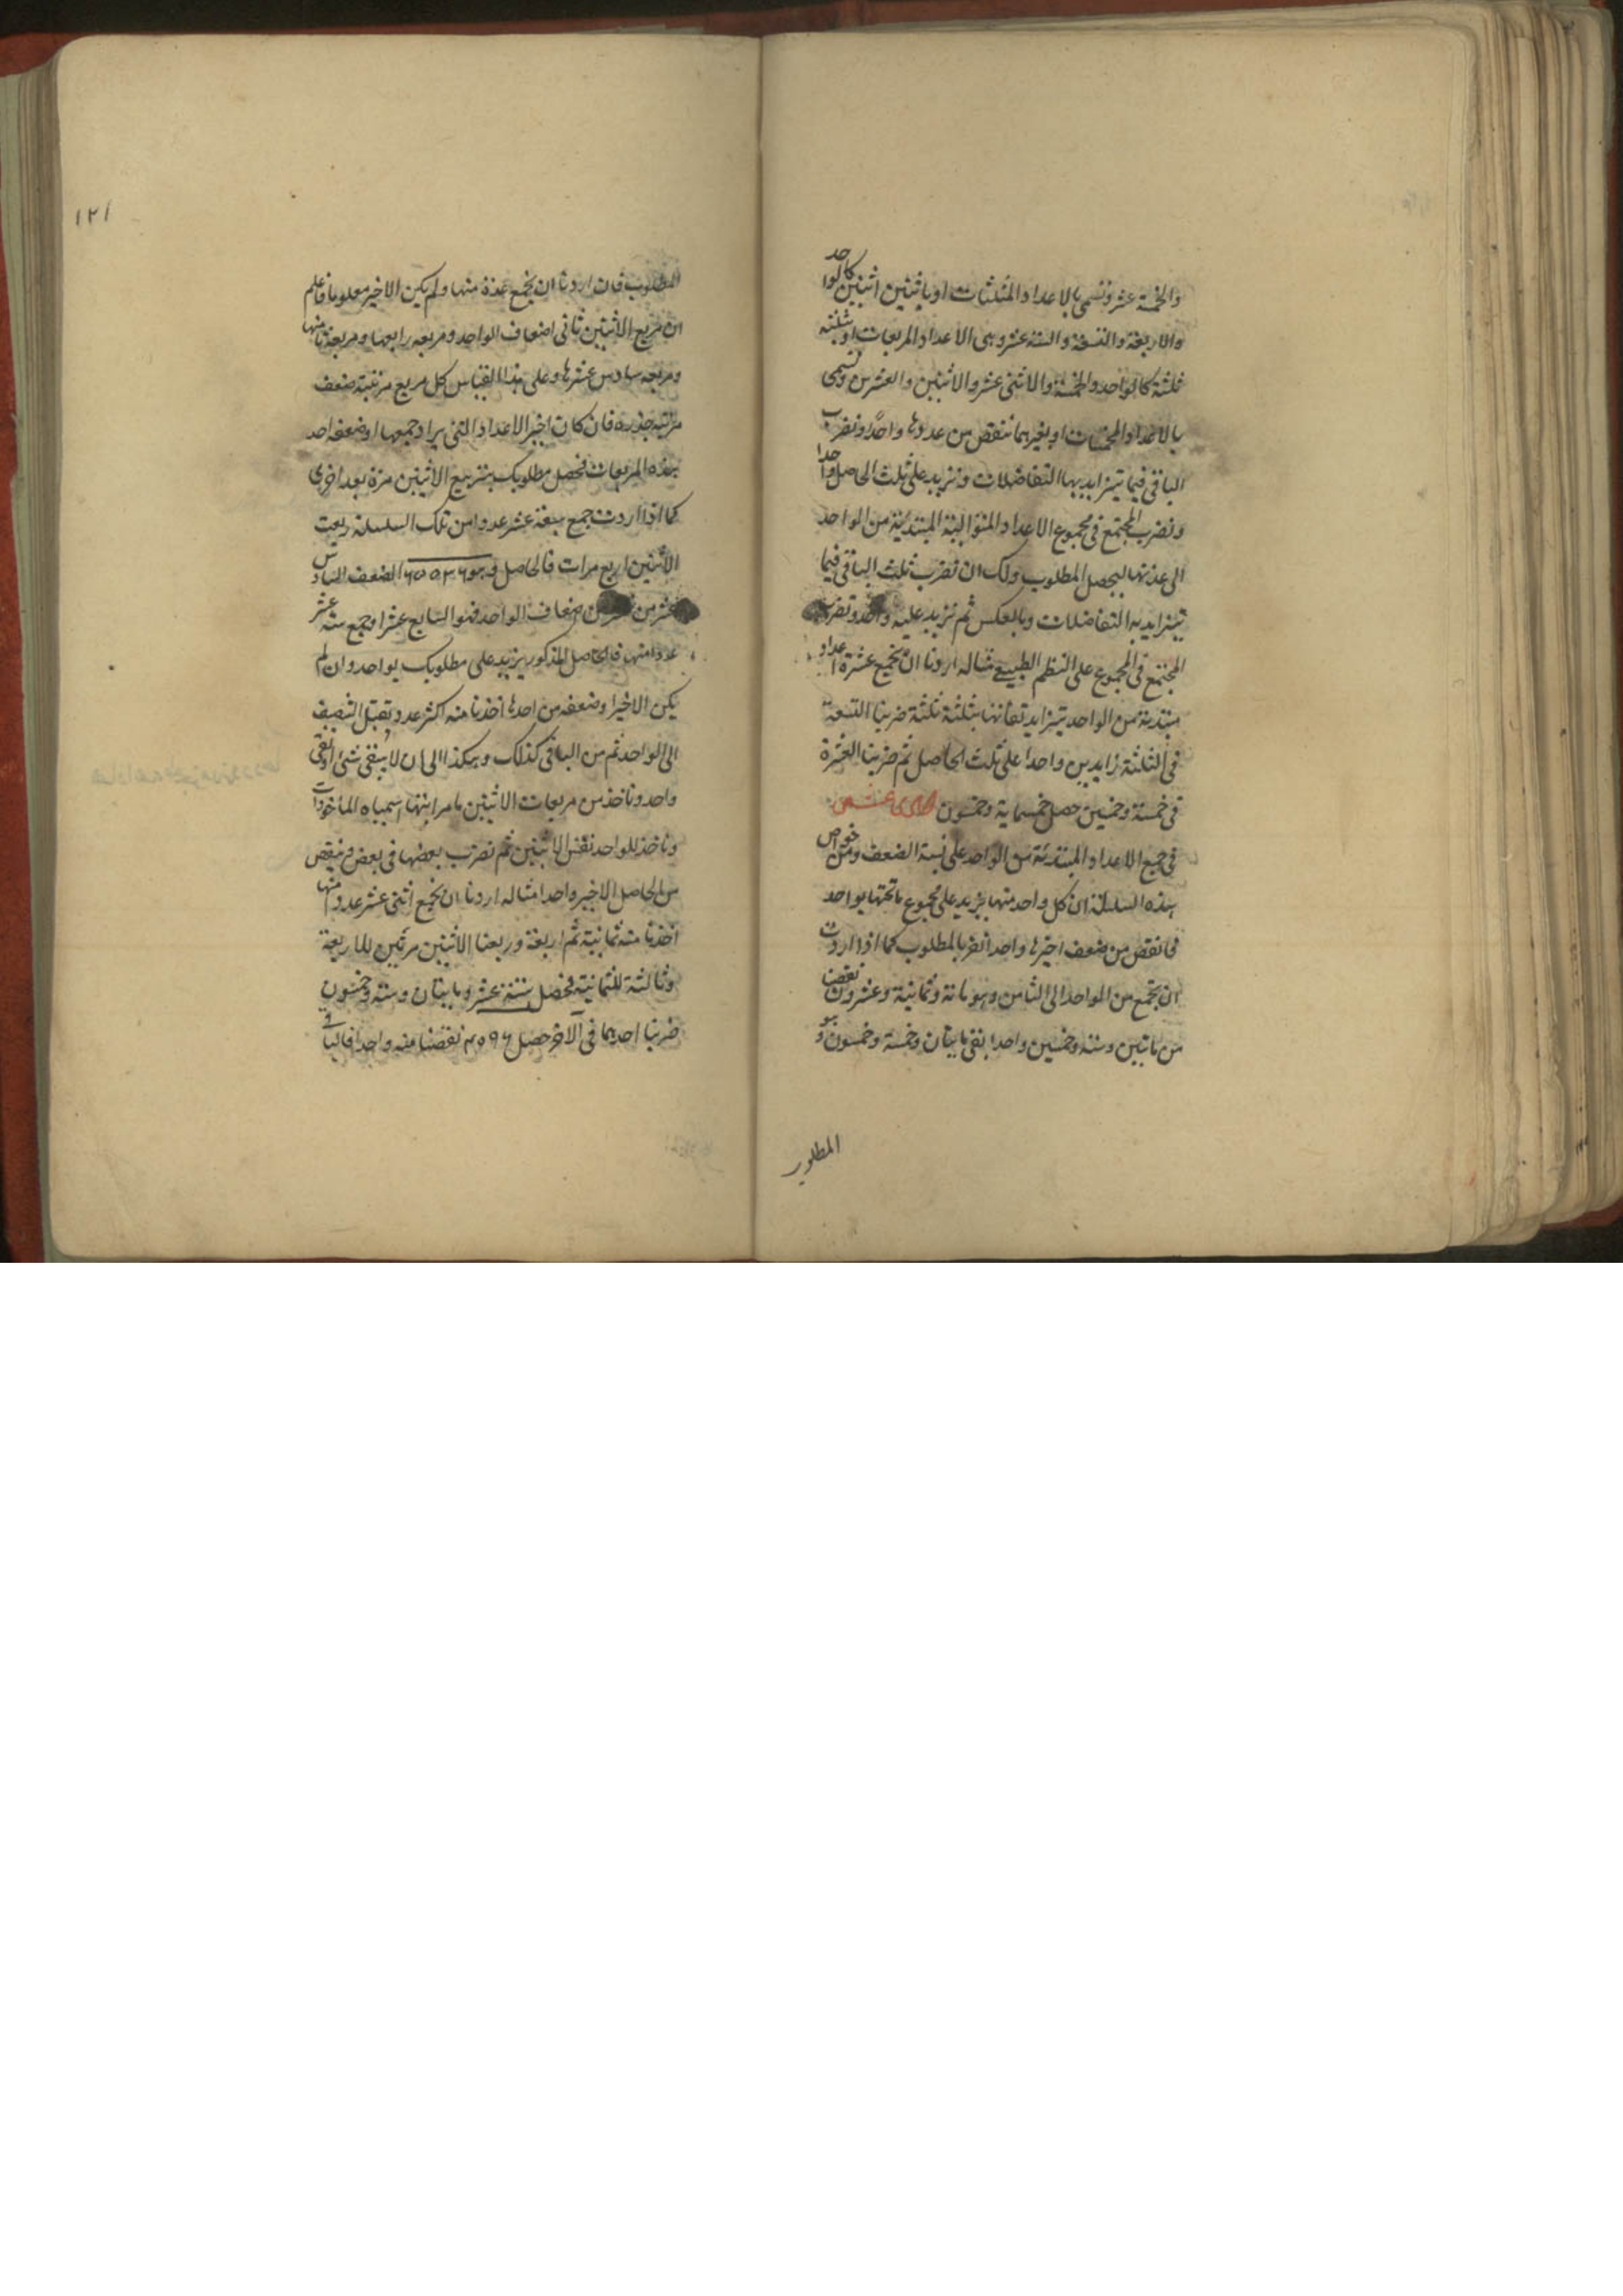 والخمسة عشر وتسمى بالاعداد المثلثات او باثنين اثنين كالواحد
والاربعة والتسعة والستة عشر وهى الاعداد المربعات او بثلثة
ثلثة كالواحد والخمسة والاثنى عشر والاثنين والعشرين وتسمى
بالاعداد المخمسات او بغيرهما ننقص من عددها واحدا ونضرب
الباقى فيما تيزايد بها التفاضلات ونزيد على ثلث الحاصل واحدا
ونضرب المجتمع فى مجموع الاعداد المتوالية المبتدئة من الواحد
الى عدتها ليحصل المطلوب ولك ان تضرب ثلث الباقى فيما
تيزايد به التفاضلات وبالعكس ثم نزيد عليه واحد وتضرب
المجتمع فى المجموع على النظم الطبيعى مثاله اردنا ان نجمع عشرة اعداد
مبتدئة من الواحد تيزايد تفاضلها بثلثة ثلثة ضربنا التسعة
فى الثلثة زايدين واحدا على ثلث الحاصل ثم ضربنا العشرة
فى خمسة وخمسين حصل خمسماية وخمسون الحادى عشر
فى جمع الاعداد المبتدئة من الواحد على نسبة الضعف ومن خواص
هذه السلسلة ان كل واحد منها يزيد على مجموع ماتحتها بواحد
فانقص من ضعف اخيرها واحدا تفز بالمطلوب كما اذا اردت
ان تجمع من الواحد الى الثامن وهو مائة وثمانية وعشرون نقصنا
من ماتين وستة وخمسين واحدا بقى مايتان وخمسة وخمسون وهو
المطلوب
١٢١
المطلوب فان اردنا ان نجمع عدة منها ولم يكن الاخير معلوما فاعلم
ان مربع الاثنين ثانى اضعاف الواحد ومربعه رابعها ومربعه ثامنها
ومربعه سادس عشرها وعلى هذا القياس كل مربع مرتبته ضعف
مرتبة جذره فان كان اخير الاعداد التى يراد جمعها او ضعفه احد
هذه المربعات فحصل مطلوبك بتربيع الاثنين مرة بعد اخرى
كما اذا اردت جمع سبعة عشر عددا من تلك السلسلة ربعت
الاثنين اربع مرات فالحاصل وهو ٦٥٥٣٦ الضعف السادس
عشر من اضعاف الواحد فهو السابع عشر او جمع ستة عشر
عددا منها فالحاصل المذكور يزيد على مطلوبك بواحد وان لم
يكن الاخير او ضعفه من احدها اخذنا منه اكثر عدد يقبل التنصيف
الى الواحد ثم من الباقى كذلك وهكذا الى ان لا يبقى شئ او يبقى
واحد وناخذ من مربعات الاثنين ما مراتبها سمياه المأخوذات
وناخذ للواحد نفس الاثنين ثم نضرب بعضها فى بعض وننقص
من الحاصل الاخير واحدا مثاله اردنا ان نجمع اثنى عشر عددا منها
اخذنا منه ثمانية ثم اربعة وربعنا الاثنين مرتين للاربعة
وثالثة للثمانية فحصل ستة عشر ومايتان وستة وخمسون
ضربنا احدهما فى الآخر حصل ٤٠٩٦ نقصنا منه واحدا فالباقى